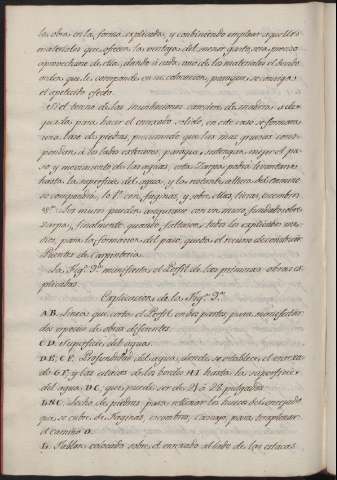 la obra en la forma explicada, y conbiniendo emplear aquellos
materiales que ofrecen la ventaja del menor gasto, sera preciso
aprovecharse de ellos, dando á cada uno de los materiales el devido
orden que le corresponde en su colocacion, para que se consiga
el apetecido efecto.
Si el terreno de las inundaciones careciere de madera adequada
para hacer el enrexado solido, en este caso se formara
una base de piedras, procurando que las mas gruesas correspondan
á los lados exteriores, para que sostengan mejor el peso
y movimiento de las aguas; esta Zarpa podrá levantarse
hasta la superficie del agua, y lo restante, altura del camino
se compondra, lo 1º con faginas, y sobre ellas, tierra, escombros
&ª. Los muros pueden asegurarse con un muro fundado sobre
Zarpa; finalmente quando faltasen todos los explicados medios,
para la formacion del paso, queda el recurso de construir
Puentes de Carpinteria.
La Figª 3ª manifiesta el Perfil de las primeras obras explicadas.
Explicacion de la Figª 3ª
A B. Linea que corta el Perfil en dos partes para manifestar
dos especies de obras diferentes.
C D. Superficie del agua.
D E, C F. Profundidad del agua, donde se establece el enrexado
G F, y las estacas de los bordes H I hasta la superficie
del agua D C, que puede ser de 24 á 28 pulgadas.
Lecho de piedras para rellenar los huecos del enrejado
que se cubre de Faginas, escombros, Cascajo, para terraplenar
el camino O.
L. Tablon colocado sobre el enrexado al lado de las estacas.